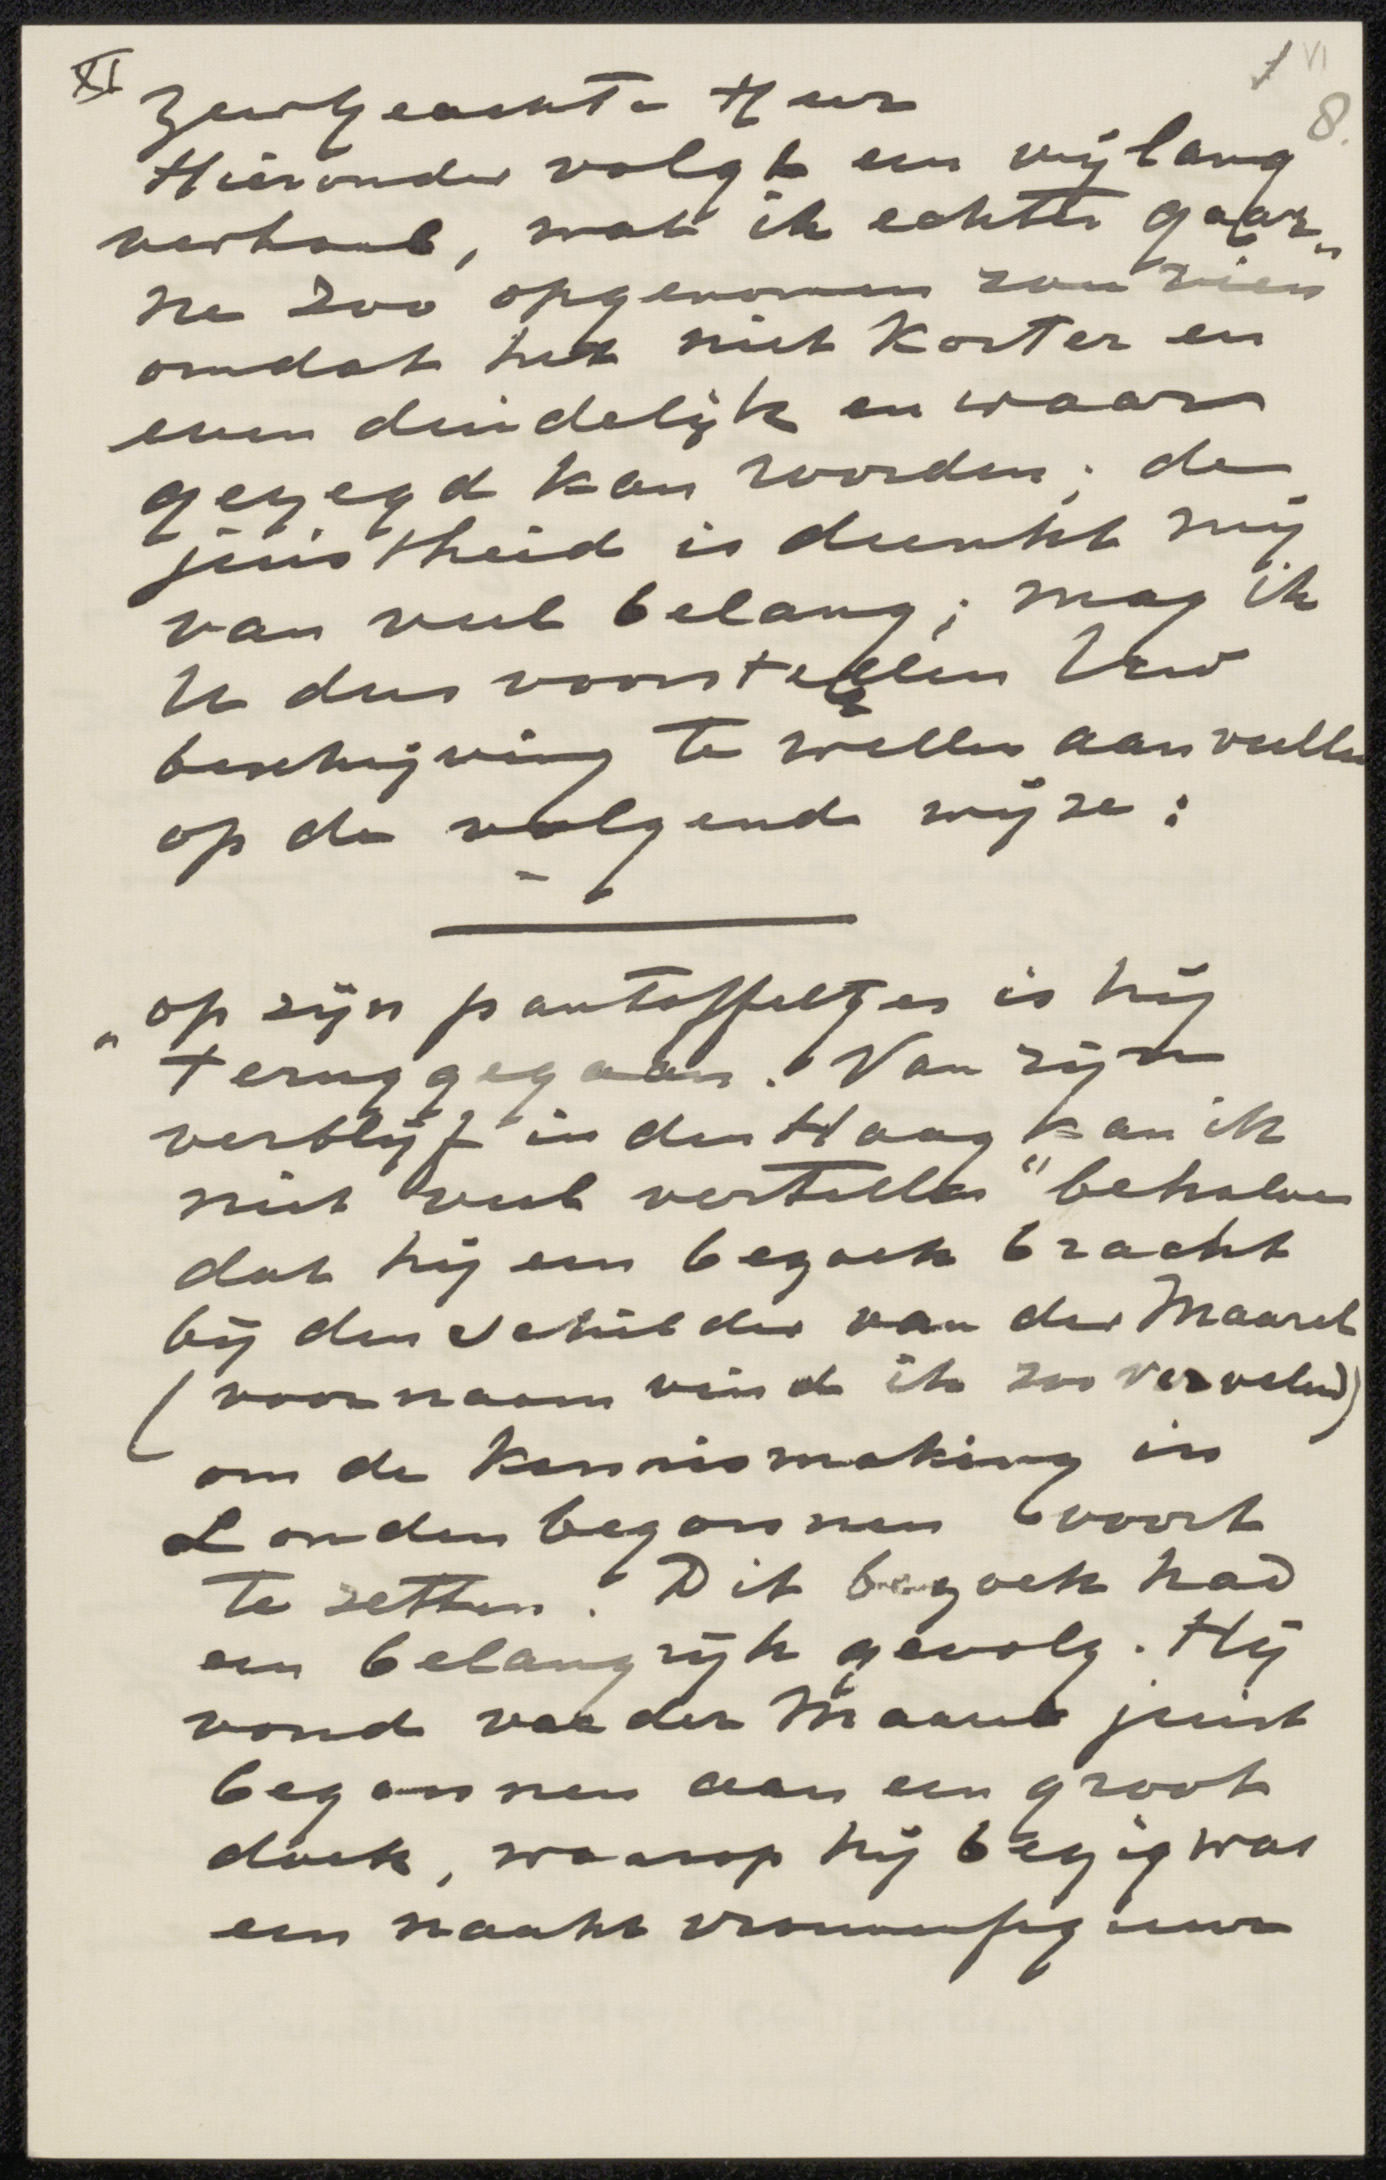 XI
1 VI
8.
Zeer Geachte Heer
Hieronder volgt een vrij lang
verhaal, wat ik echter gaar„
ne zoo opgenomen zou zien"
omdat het niet korter en
even duidelijk en waar
gezegd kan worden; de
juistheid is dunkt mij
van veel belang; mag ik
U dus voorstellen Uw
beschrijving te willen aanvullen
op de volgende wijze:
„op zijn pantoffeltjes is hij
teruggegaan. Van zijn
verblijf in den Haag kan ik
niet veel vertellen" behalve
dat hij een bezoek bracht
bij den schilder van der Maarel
(voornaam vind ik zoo vervelend)
om de kennismaking in
Londen begonnen voort
te zetten. Dit bezoek had
een belangrijk gevolg. Hij
vond van der Maarel juist
begonnen aan een groot
doek, waarop hij bezig was
een naakt vrouwenfiguur